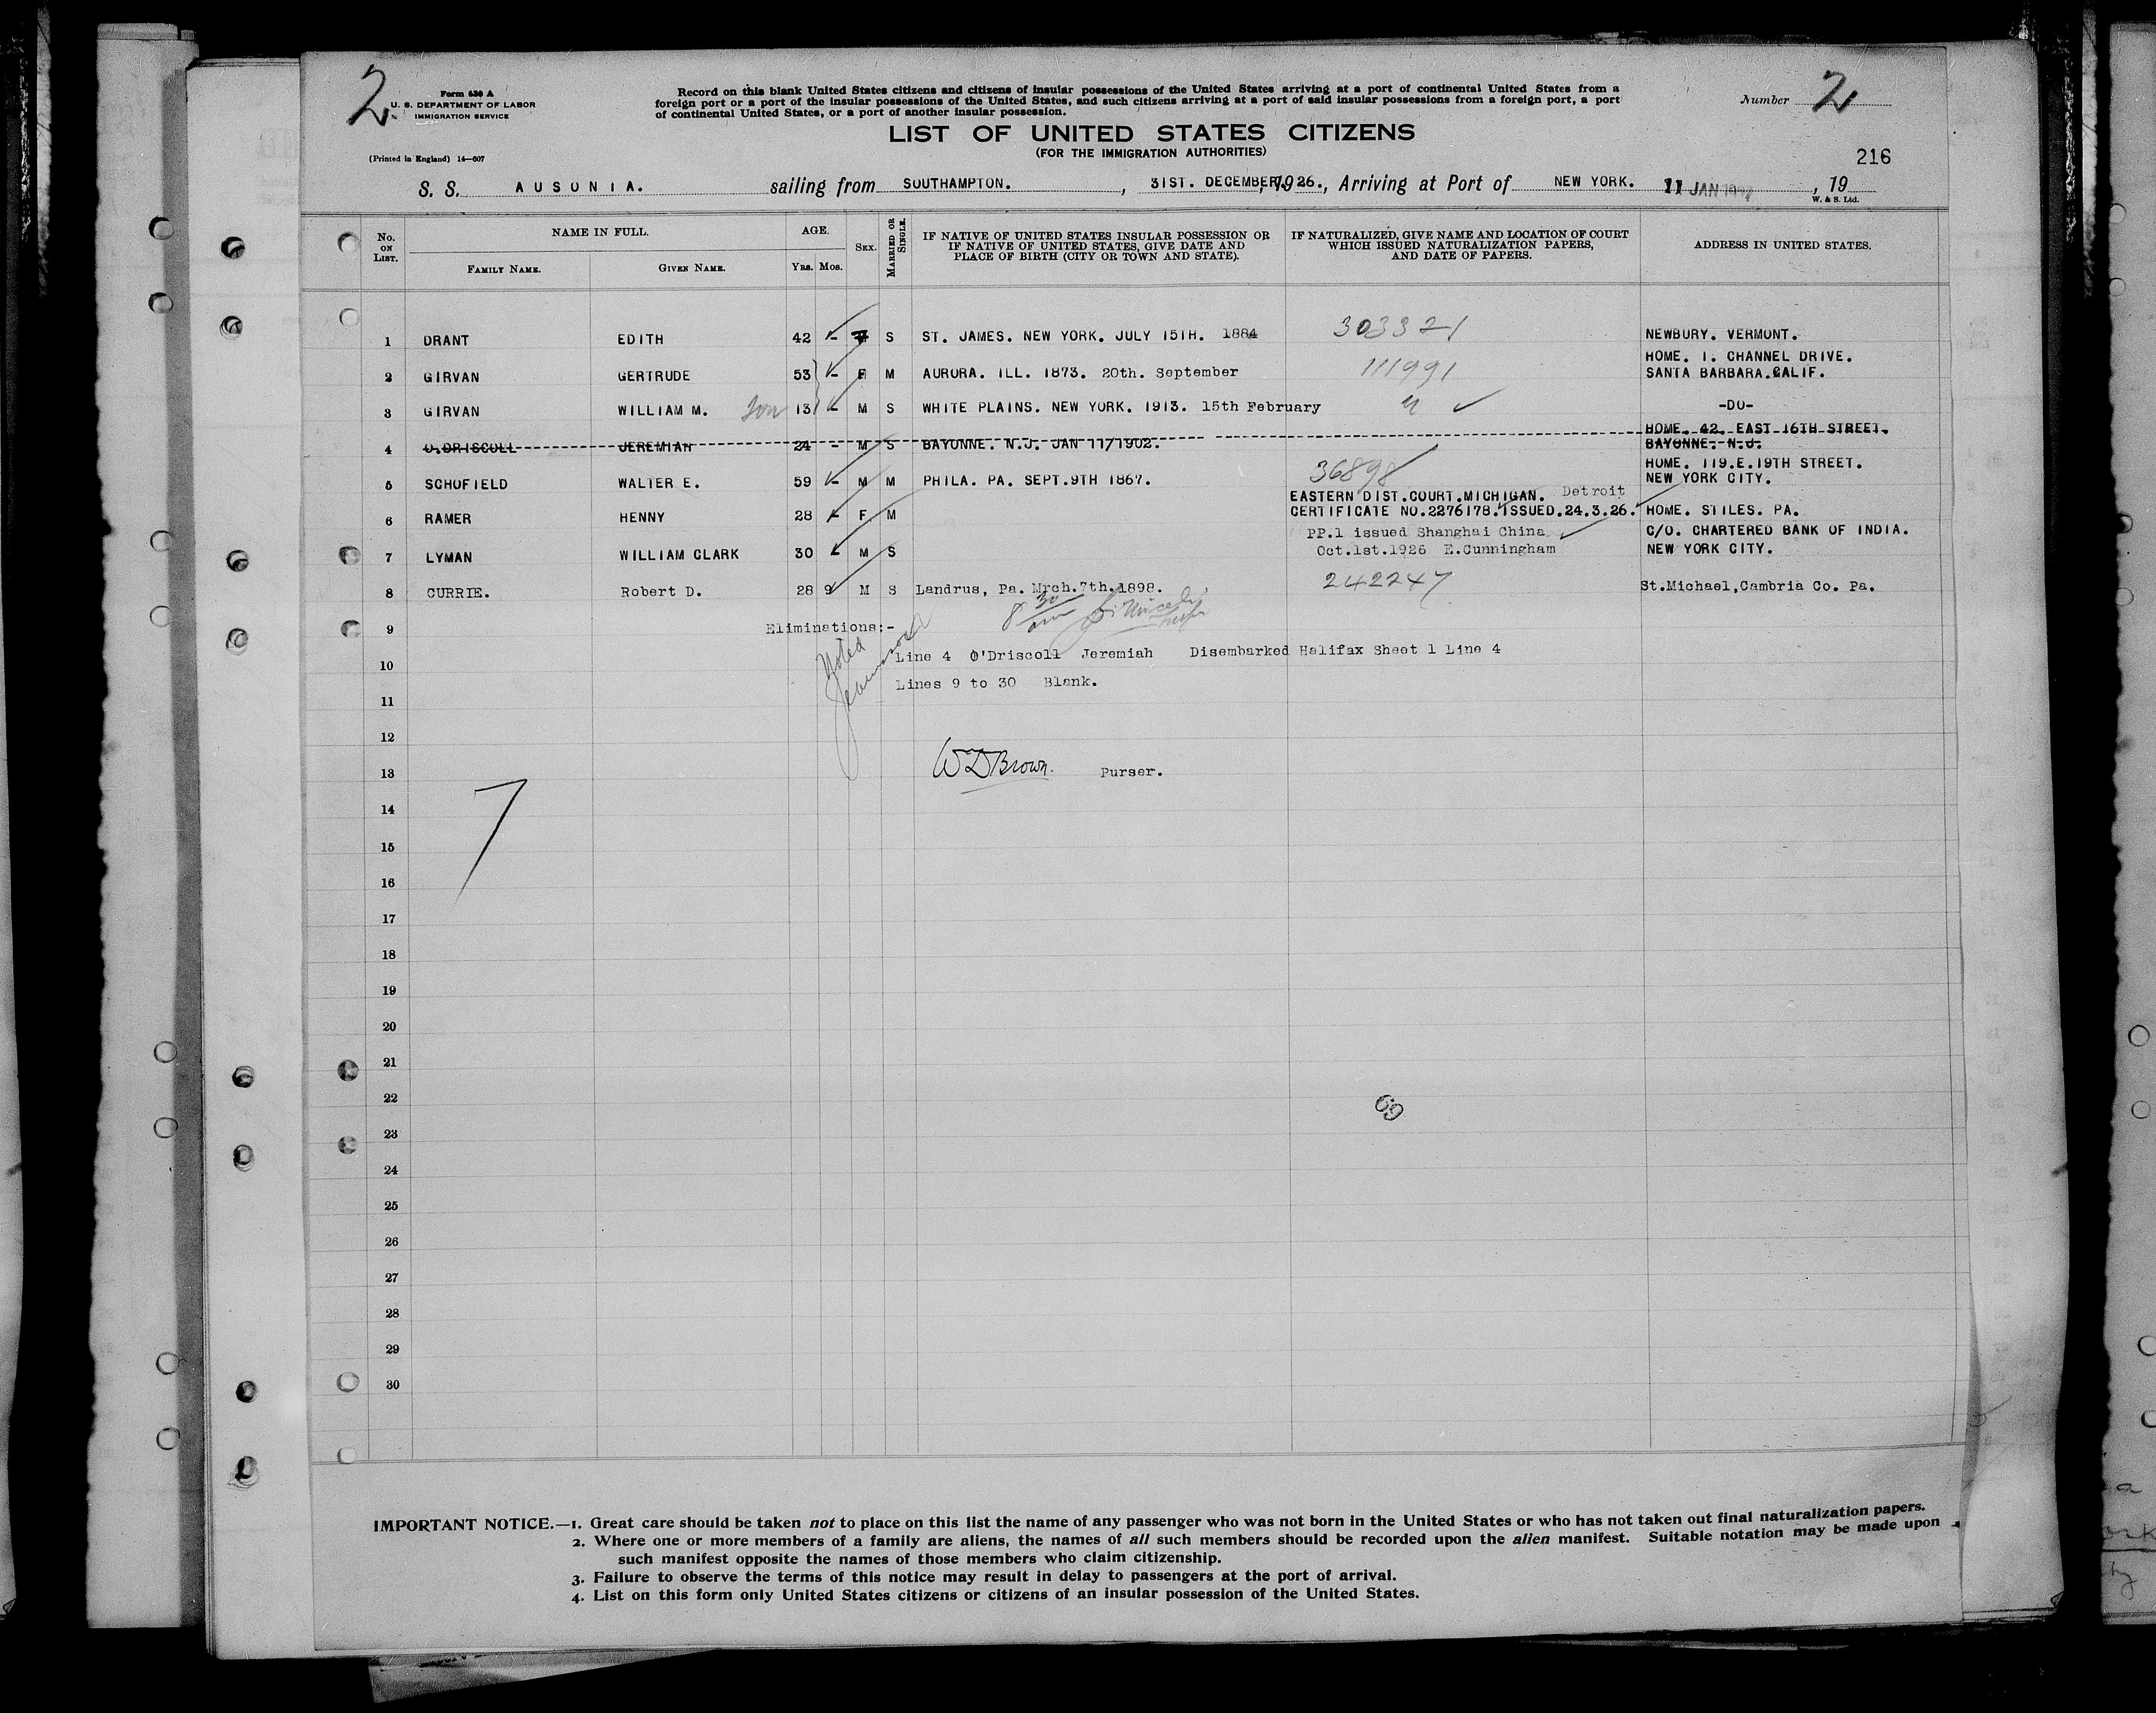 2
Form 630 A
U. S. DEPARTMENT OF LABOR
IMMIGRATION SERVICE
(Printed in England) 14—607
Record on this blank United States citizens and citizens of insular possessions of the United States arriving at a port of continental United States from a
foreign port or a port of the insular possessions of the United States, and such citizens arriving at a port of said insular possessions from a foreign port, a port
of continental United States, or a port of another insular possession.
Number 2
LIST OF UNITED STATES CITIZENS
(FOR THE IMMIGRATION AUTHORITIES)
216
S. S. AUSONIA. sailing from SOUTHAMPTON. , 31ST. DECEMBER, 1926., Arriving at Port of NEW YORK. 11 JAN , 19
W. & S. Ltd.
No. ON LIST. NAME IN FULL. AGE. SEX. MARRIED OR SINGLE. IF NATIVE OF UNITED STATES INSULAR POSSESSION OR IF NATIVE OF UNITED STATES, GIVE DATE AND PLACE OF BIRTH (CITY OR TOWN AND STATE). IF NATURALIZED, GIVE NAME AND LOCATION OF COURT WHICH ISSUED NATURALIZATION PAPERS, AND DATE OF PAPERS. ADDRESS IN UNITED STATES.
FAMILY NAME. GIVEN NAME. YRS. MOS.
1 DRANT EDITH 42 - F S ST. JAMES. NEW YORK. JULY 15TH. 1884 303321 NEWBURY. VERMONT.
HOME. 1. CHANNEL DRIVE.
2 GIRVAN GERTRUDE 53 - F M AURORA. ILL. 1873. 20th. September 111991 SANTA BARBARA.CALIF.
3 GIRVAN WILLIAM M. Son 13 - M S WHITE PLAINS. NEW YORK. 1913. 15th February " ✓ -DO-
HOME. 42. EAST 16TH STREET.
4 O.DRISCOLL JEREMIAH 24 - M S BAYONNE. N.J. JAN 11/1902. BAYONNE. N.J.
HOME. 119.E.19TH STREET.
5 SCHOFIELD WALTER E. 59 - M M PHILA. PA. SEPT.9TH 1867. 36898 NEW YORK CITY.
EASTERN DIST.COURT.MICHIGAN. Detroit
6 RAMER HENNY 28 - F M CERTIFICATE NO.2276178.ISSUED.24.3.26. HOME. STILES. PA.
PP.1 issued Shanghai China C/O. CHARTERED BANK OF INDIA.
7 LYMAN WILLIAM CLARK 30 - M S Oct.1st.1926 E.Cunningham NEW YORK CITY.
8 CURRIE. Robert D. 28 9 M S Landrus, Pa. Mrch.7th.1898. 242247 St.Michael,Cambria Co. Pa.
8 30 am
9 Eliminations:-
Noted
10 Line 4 O'Driscoll Jeremiah Disembarked Halifax Sheet 1 Line 4
Lines 9 to 30 Blank.
11
12
13 WD Brown. Purser.
7
14
15
16
17
18
19
20
21
22
69
23
24
25
26
27
28
29
30
IMPORTANT NOTICE.—1. Great care should be taken not to place on this list the name of any passenger who was not born in the United States or who has not taken out final naturalization papers.
2. Where one or more members of a family are aliens, the names of all such members should be recorded upon the alien manifest. Suitable notation may be made upon
such manifest opposite the names of those members who claim citizenship.
3. Failure to observe the terms of this notice may result in delay to passengers at the port of arrival.
4. List on this form only United States citizens or citizens of an insular possession of the United States.